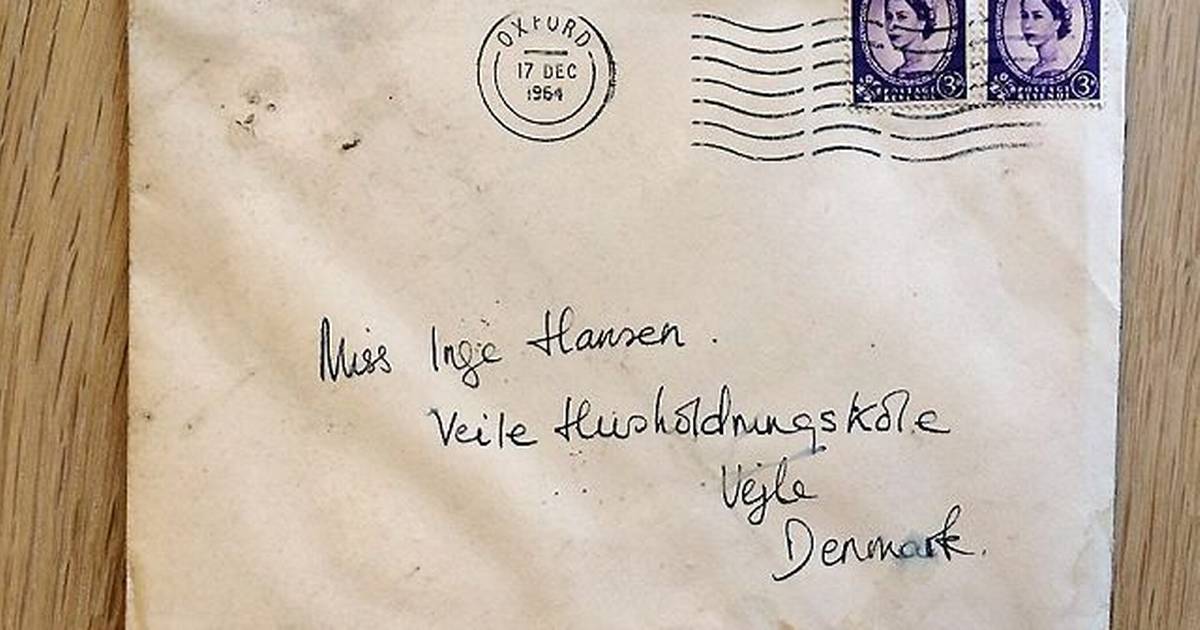 OXFORD
17 DEC
1964
3
3
Miss Inge Hansen.
Veile Husholdningskole
Vejle
Denmark.